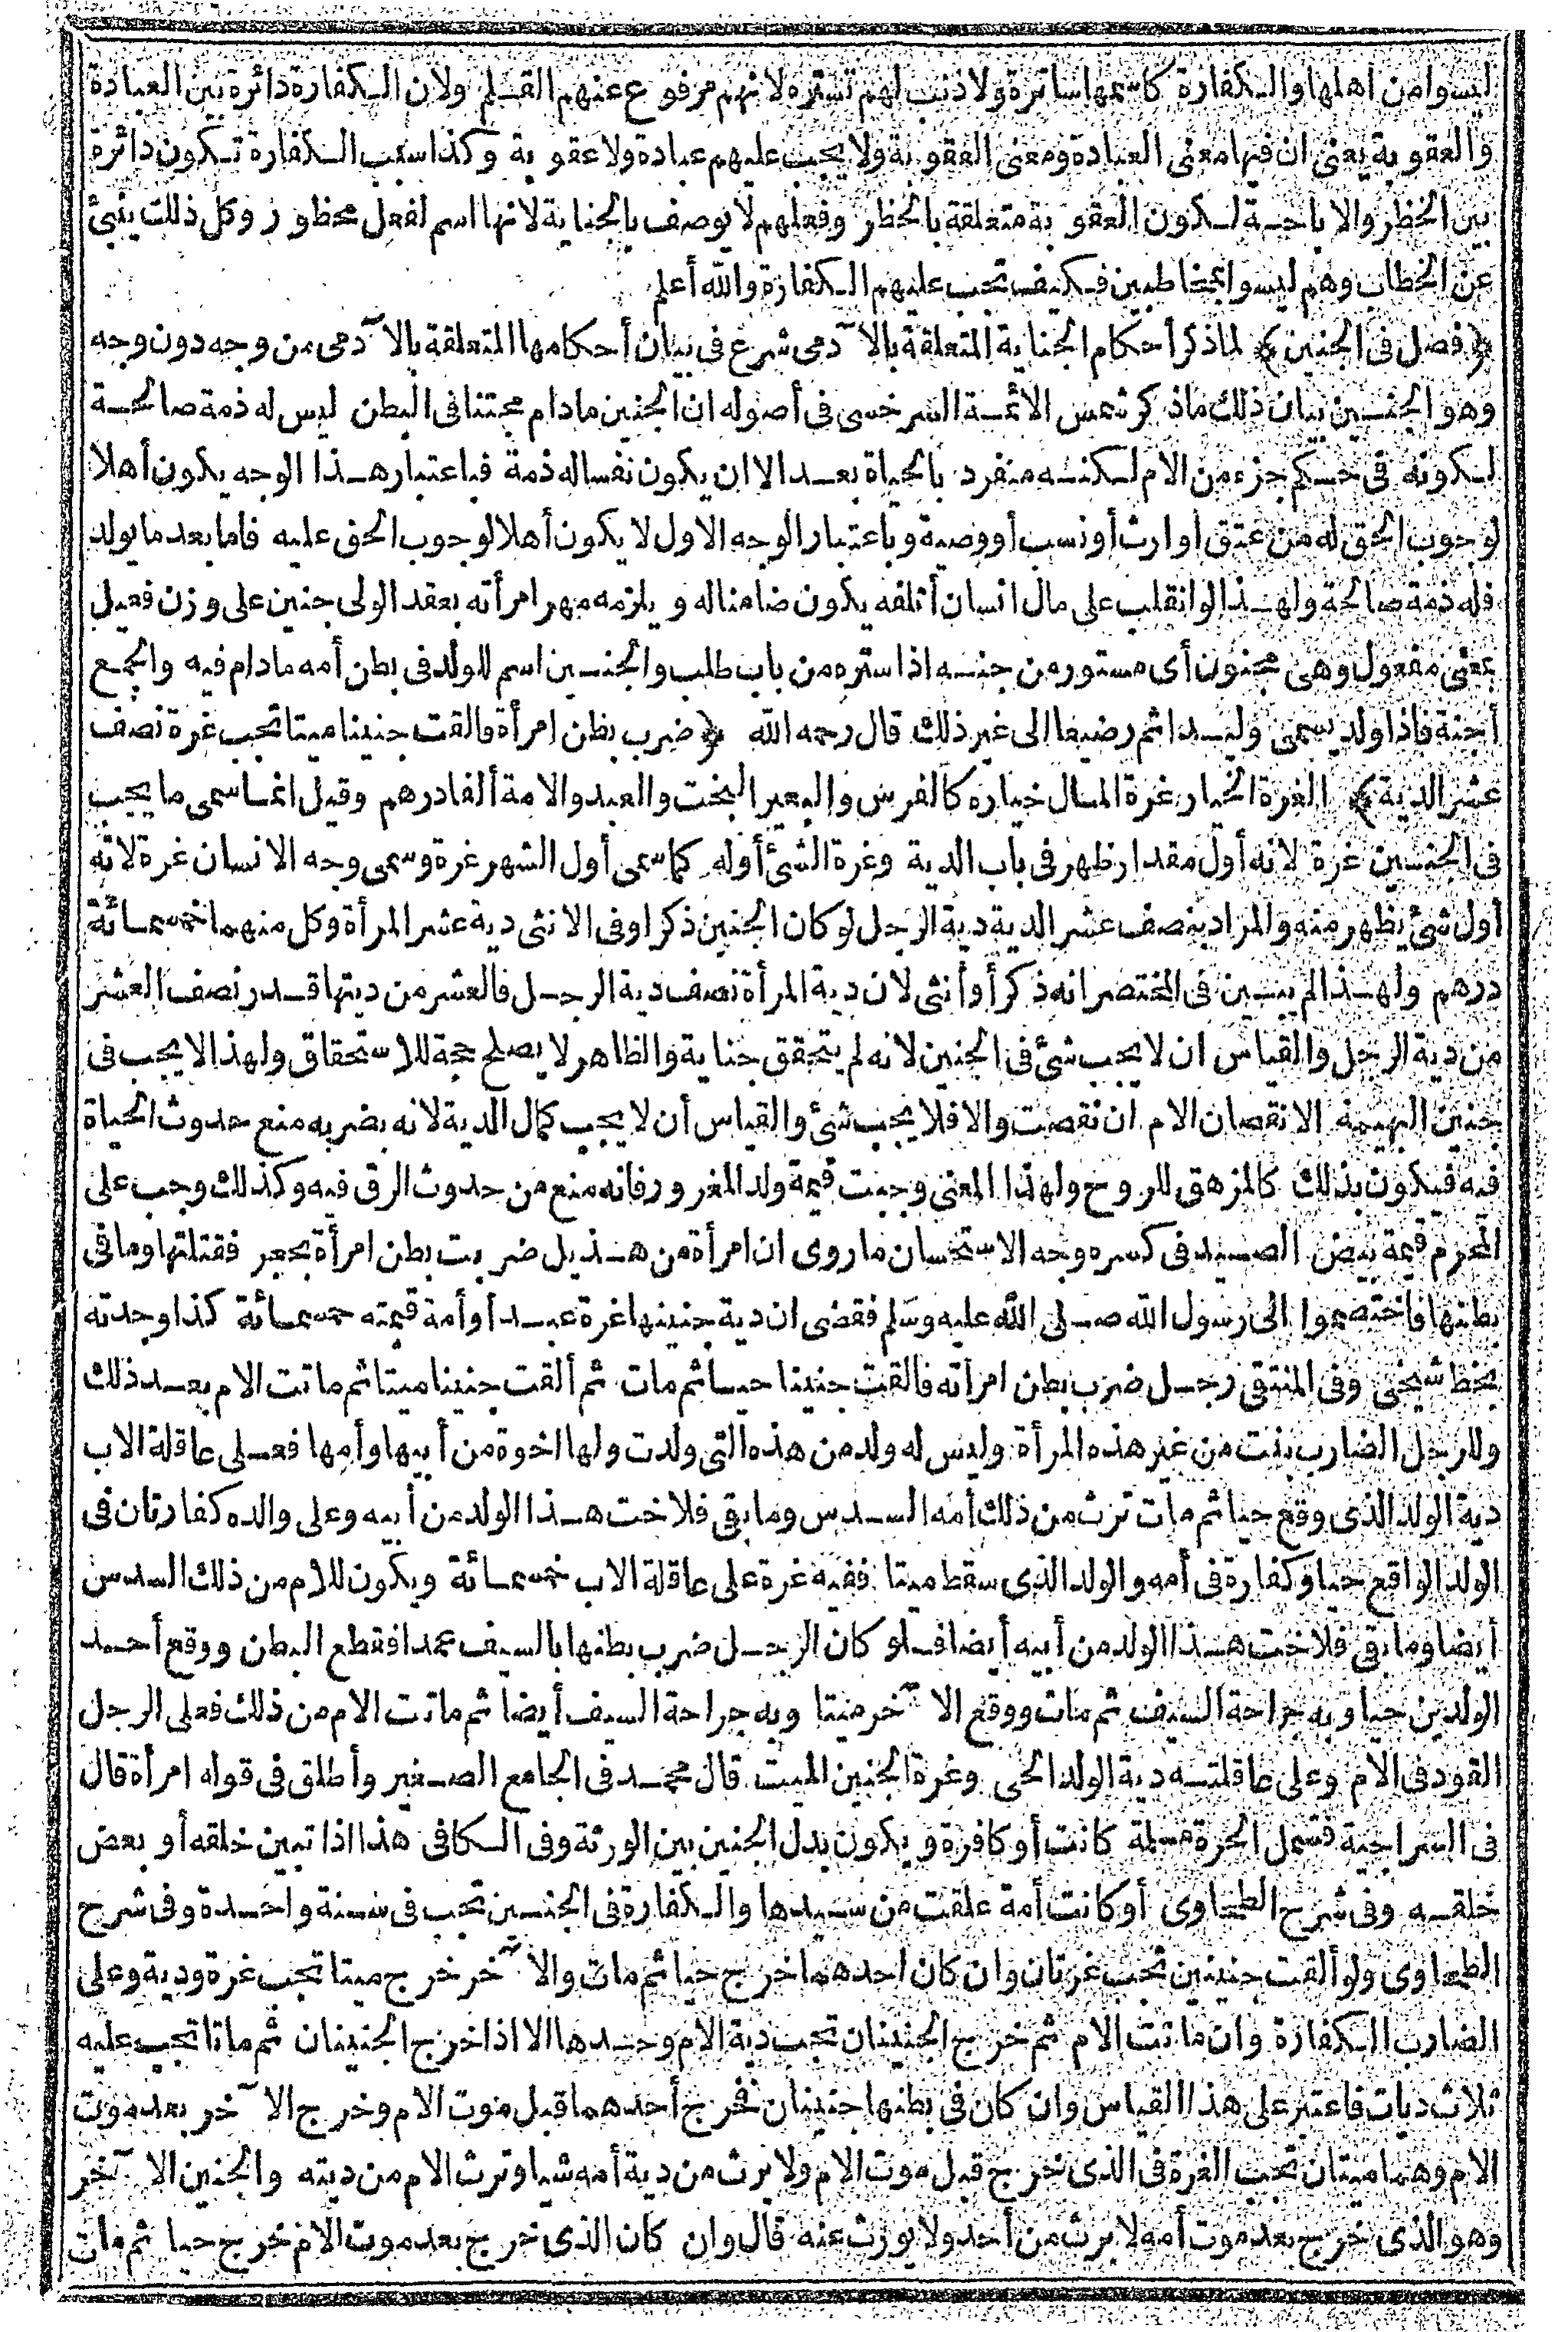 ليسوا من أهلها والكفارة كاسمها ساترة ولا ذنب لهم تستره لانهم مرفوع عنهم القلم ولان الكفارة دائرة بين العبادة
والعقوبة يعنى ان فيها معنى العبادة ومعنى العقوبة ولا يجب عليهم عبادة ولا عقوبة وكذا سبب الكفارة تكون دائرة
بين الحظر والاباحة لكون العقوبة متعلقة بالحظر وفعلهم لا يوصف بالجناية لانها اسم لفعل محظور وكل ذلك ينبئ
عن الخطاب وهم ليسوا بمخاطبين فكيف تجب عليهم الكفارة والله أعلم
﴿فصل فى الجنين﴾ لما ذكر أحكام الجناية المتعلقة بالآدمى شرع فى بيان أحكامها المتعلقة بالآدمى من وجه دون وجه
وهو الجنين بيان ذلك ماذكر شمس الائمة السرخسى فى أصوله ان الجنين مادام مجتنا فى البطن ليس له ذمة صالحة
لكونه فى حكم جزء من الام لكنه منفرد بالحياة بعد الا ان يكون نفسا له ذمة فباعتبار هذا الوجه يكون أهلا
لوجوب الحق له من عتق أو ارث أو نسب أو وصية وباعتبار الوجه الاول لا يكون أهلا لوجوب الحق عليه فاما بعد ما يولد
فله ذمة صالحة ولهذا لو انقلب على مال انسان أتلفه يكون ضامنا له ويلزمه مهر امرأته بعقد الولى جنين على وزن فعيل
بمعنى مفعول وهى مجنون أى مستور من جنه اذا ستره من باب طلب والجنين اسم للولد فى بطن أمه مادام فيه والجمع
أجنة فاذا ولد يسمى وليدا ثم رضيعا الى غير ذلك قال رحمه الله ﴿ضرب بطن امرأة فالقت جنينا ميتا تجب غرة نصف
عشر الدية﴾ الغرة الخيار غرة المال خياره كالفرس والبعير البخت والعبد والامة ألفا درهم وقيل انما سمى ما يجب
فى الجنين غرة لانه أول مقدار ظهر فى باب الدية وغرة الشئ أوله كما سمى أول الشهر غرة وسمى وجه الانسان غرة لانه
أول شئ يظهر منه والمراد به نصف عشر الدية دية الرجل لو كان الجنين ذكرا وفى الانثى دية عشر المرأة وكل منهما خمسمائة
درهم ولهذا لم يبين فى المختصر انه ذكر أو أنثى لان دية المرأة نصف دية الرجل فالعشر من ديتها قدر نصف العشر
من دية الرجل والقياس ان لا يجب شئ فى الجنين لانه لم يتحقق جناية والظاهر لا يصلح حجة للاستحقاق ولهذا لا يجب فى
جنين البهيمة الا نقصان الام ان نقصت والا فلا يجب شئ والقياس أن لا يجب كمال الدية لانه بضربه منع حدوث الحياة
فيه فيكون بذلك كالمزهق للروح ولهذا المعنى وجبت قيمة ولد المغرور فانه منع من حدوث الرق فيه وكذلك وجب على
المحرم قيمة بيض الصيد فى كسره وجه الاستحسان ماروى ان امرأة من هذيل ضربت بطن امرأة بحجر فقتلتها وما فى
بطنها فاختصموا الى رسول الله صلى الله عليه وسلم فقضى ان دية جنينها غرة عبد أو أمة قيمته خمسمائة كذا وجدته
بخط شيخى وفى المنتقى رجل ضرب بطن امرأته فالقت جنينا حيا ثم مات ثم ألقت جنينا ميتا ثم ماتت الام بعد ذلك
وللرجل الضارب بنت من غير هذه المرأة وليس له ولد من هذه التى ولدت ولها اخوة من أبيها وأمها فعلى عاقلة الاب
دية الولد الذى وقع حيا ثم مات ترث من ذلك أمه السدس وما بقى فلاخت هذا الولد من أبيه وعلى والده كفارتان فى
الولد الواقع حيا وكفارة فى أمه والولد الذى سقط ميتا ففيه غرة على عاقلة الاب خمسمائة ويكون للام من ذلك السدس
أيضا وما بقى فلاخت هذا الولد من أبيه أيضا فلو كان الرجل ضرب بطنها بالسيف عمدا فقطع البطن ووقع أحد
الولدين حيا وبه جراحة السيف ثم مات ووقع الآخر ميتا وبه جراحة السيف أيضا ثم ماتت الام من ذلك فعلى الرجل
القود فى الام وعلى عاقلته دية الولد الحى وغرة الجنين الميت قال محمد فى الجامع الصغير وأطلق فى قوله امرأة قال
فى السراجية فشمل الحرة مسلمة كانت أو كافرة ويكون بدل الجنين بين الورثة وفى الكافى هذا اذا تبين خلقه أو بعض
خلقه وفى شرح الطحاوى أو كانت أمة علقت من سيدها والكفارة فى الجنين تجب فى سنة واحدة وفى شرح
الطحاوى ولو ألقت جنينين تجب غرتان وان كان احدهما خرج حيا ثم مات والآخر خرج ميتا تجب غرة ودية وعلى
الضارب الكفارة وان ماتت الام ثم خرج الجنينان تجب دية الام وحدها الا اذا خرج الجنينان ثم ماتا تجب عليه
ثلاث ديات فاعتبر على هذا القياس وان كان فى بطنها جنينان فخرج أحدهما قبل موت الام وخرج الآخر بعد موت
الام وهما ميتان تجب الغرة فى الذى خرج قبل موت الام ولا يرث من دية أمه شيأ وترث الام من ديته والجنين الآخر
وهو الذى خرج بعد موت أمه لا يرث من أحد ولا يورث عنه قال وان كان الذى خرج بعد موت الام خرج حيا ثم مات